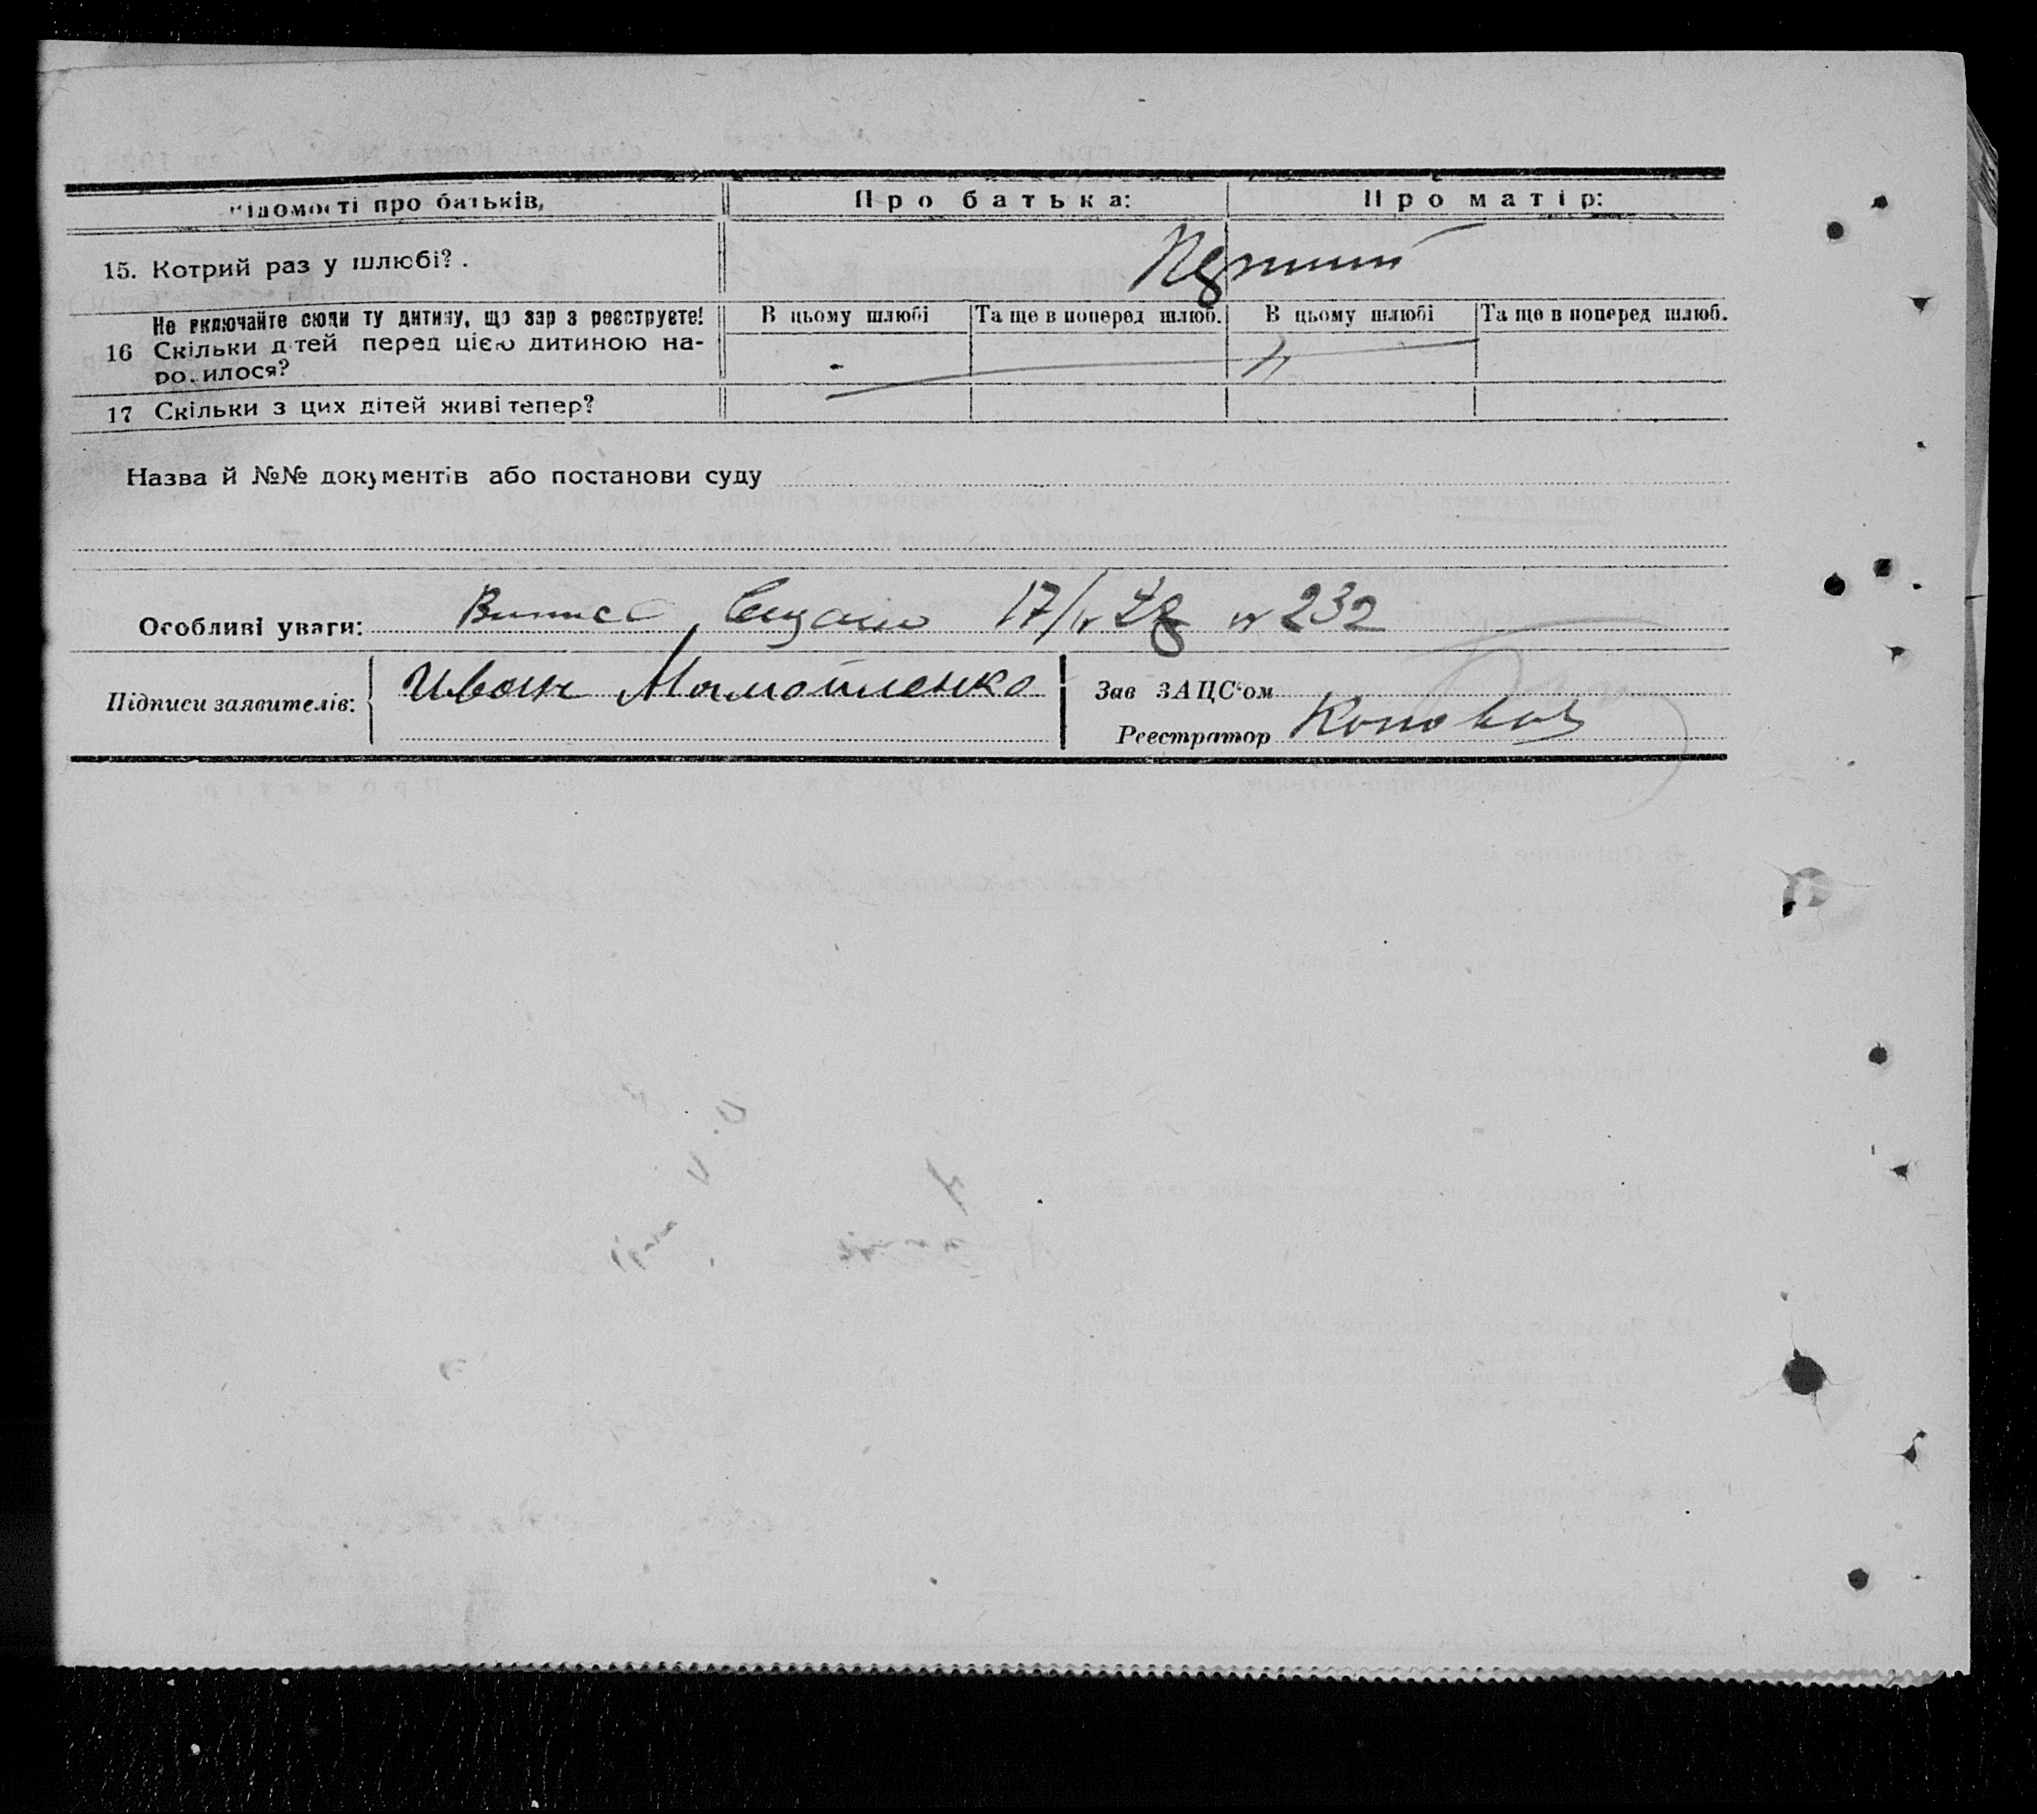 ідомості про батьків, Про батька: Про матір:
15. Котрий раз у шлюбі? .
Не включайте сюди ту дитину, що зар з реєструєте! В цьому шлюбі Та ще в поперед шлюб. В цьому шлюбі Та ще в поперед шлюб.
16 Скільки дітей перед цією дитиною на-
ро. илося?
17 Скільки з цих дітей живі тепер?
Назва й №№ документів або постанови суду
Особливі уваги: Випис 17/IV 28 № 232
Підписи заявителів: Иван Мамотенко Зав ЗАЦС‘ом
Реєстратор